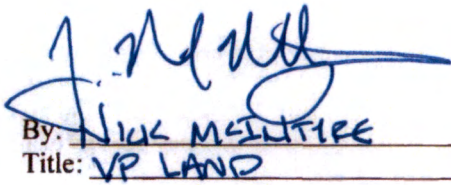 By: NICK MCINTYRE
Title: VP LAND